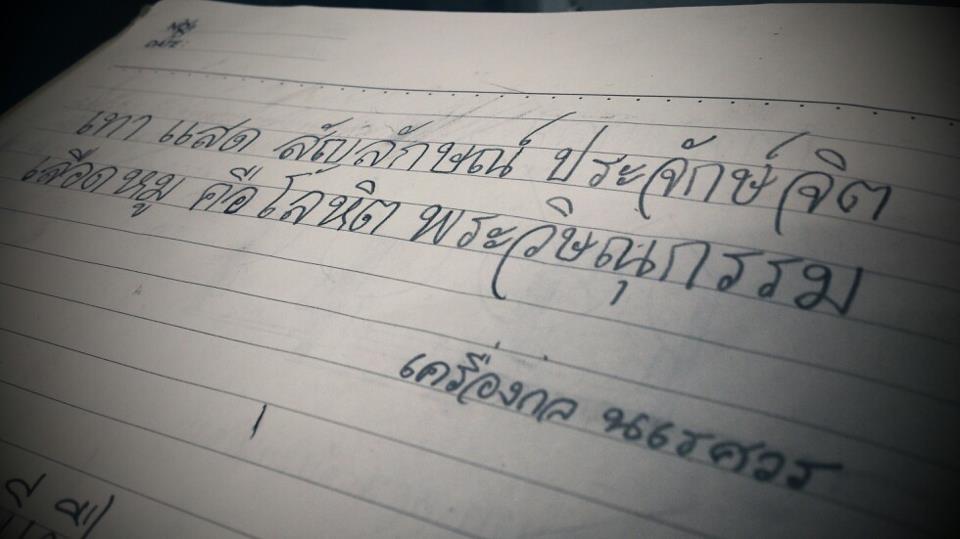 NO.
DATE:
เทา แสด สัญลักษณ์ ประจักษ์จิต
เลือดหมู คือโลหิต พระวิษณุกรรม
เครื่องกล นเรศวร